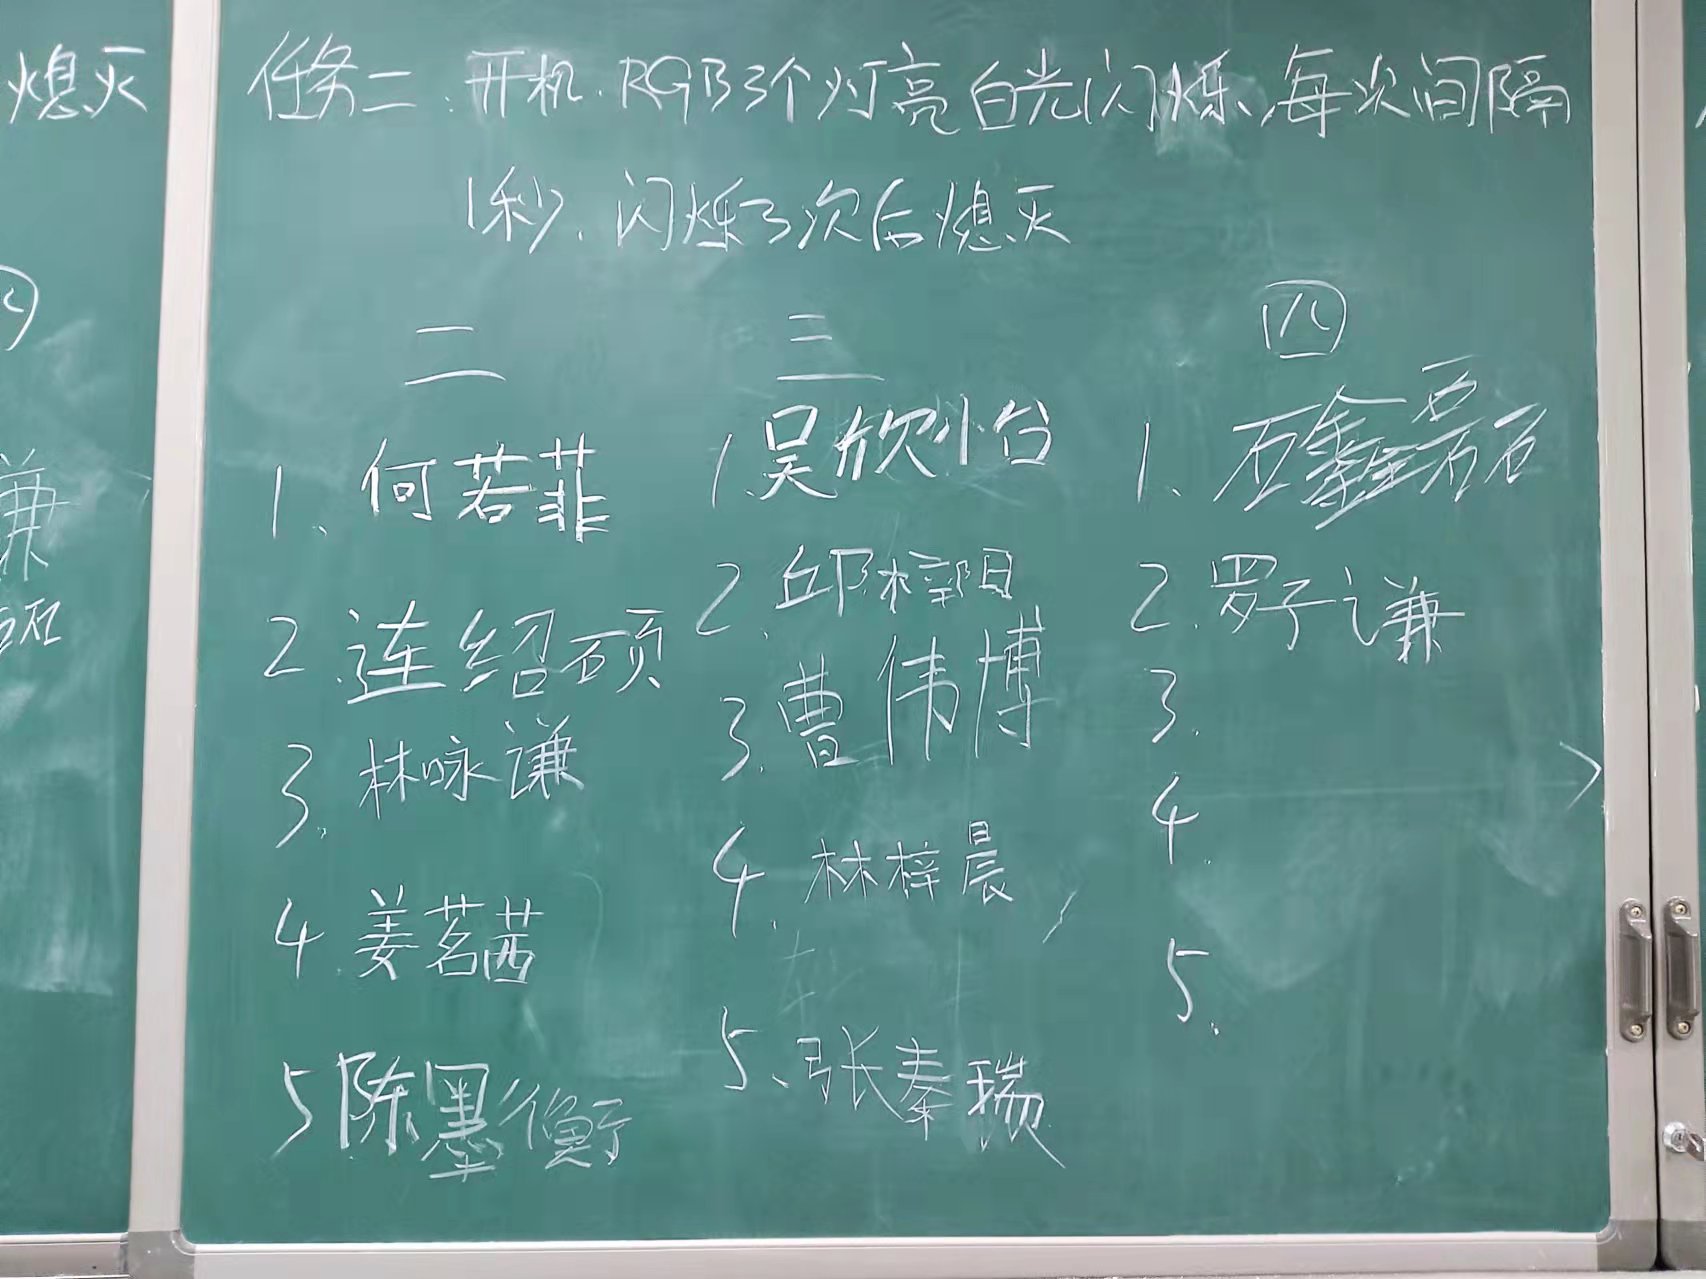 熄灭
任务二:开机.RGB3个灯亮白光闪烁,每次间隔
1秒.闪烁3次后熄灭
二
1、何若菲
2.连绍硕
3.林咏谦
4.姜茗茜
5陈墨衡
三
1.吴欣怡
2.邱梓阳
3.曹伟博
4.林梓晨
5、张秦瑞
四
1、石鑫磊
2.罗子谦
3.
4.
5.
谦